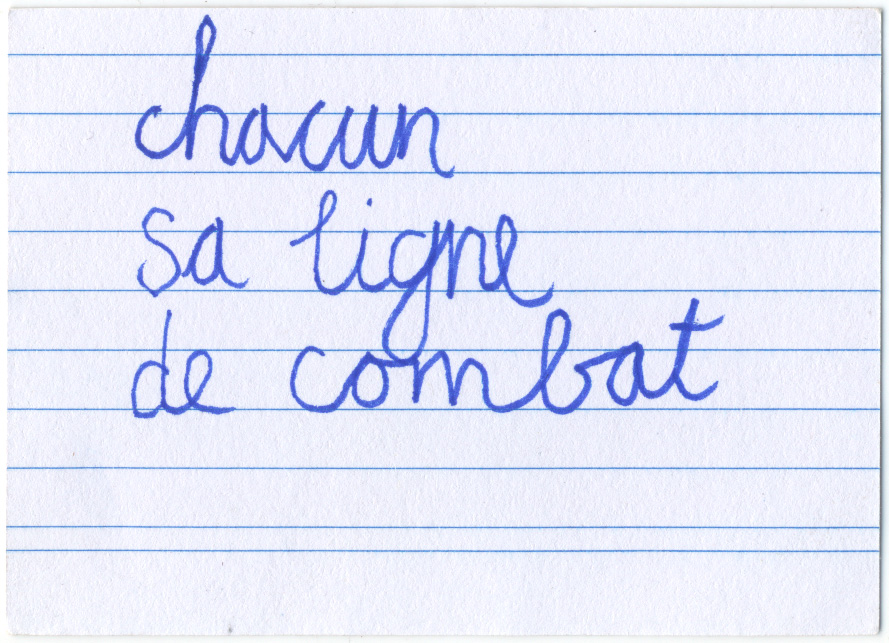 chacun
sa ligne
de combat